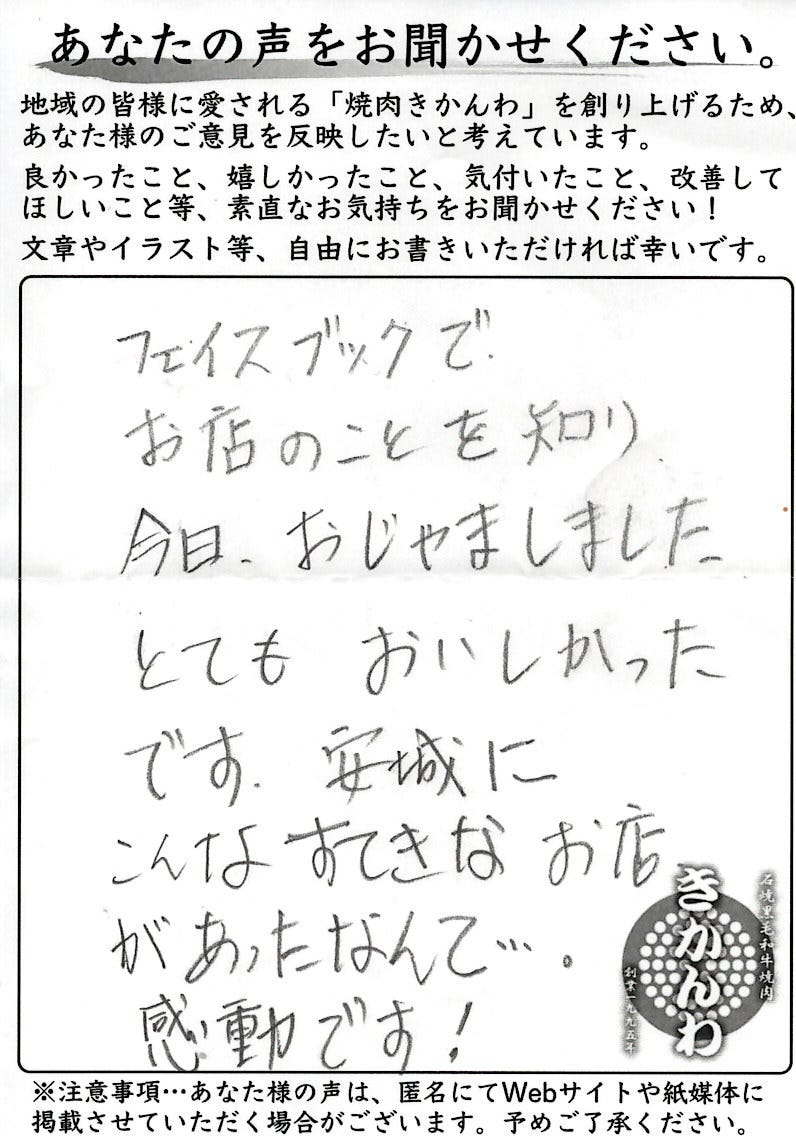 あなたの声をお聞かせください。
地域の皆様に愛される「焼肉きかんわ」を創り上げるため、
あなた様のご意見を反映したいと考えています。
良かったこと、嬉しかったこと、気付いたこと、改善して
ほしいこと等、素直なお気持ちをお聞かせください！
文章やイラスト等、自由にお書きいただければ幸いです。
フェイスブックで
お店のことを知り
今日、おじゃましました
とても おいしかった
です. 安城に
こんな すてきな お店
があったなんて…。
感動です！
石焼黒毛和牛焼肉
きかんわ
創業一九九五年
※注意事項…あなた様の声は、匿名にてWebサイトや紙媒体に
掲載させていただく場合がございます。予めご了承ください。